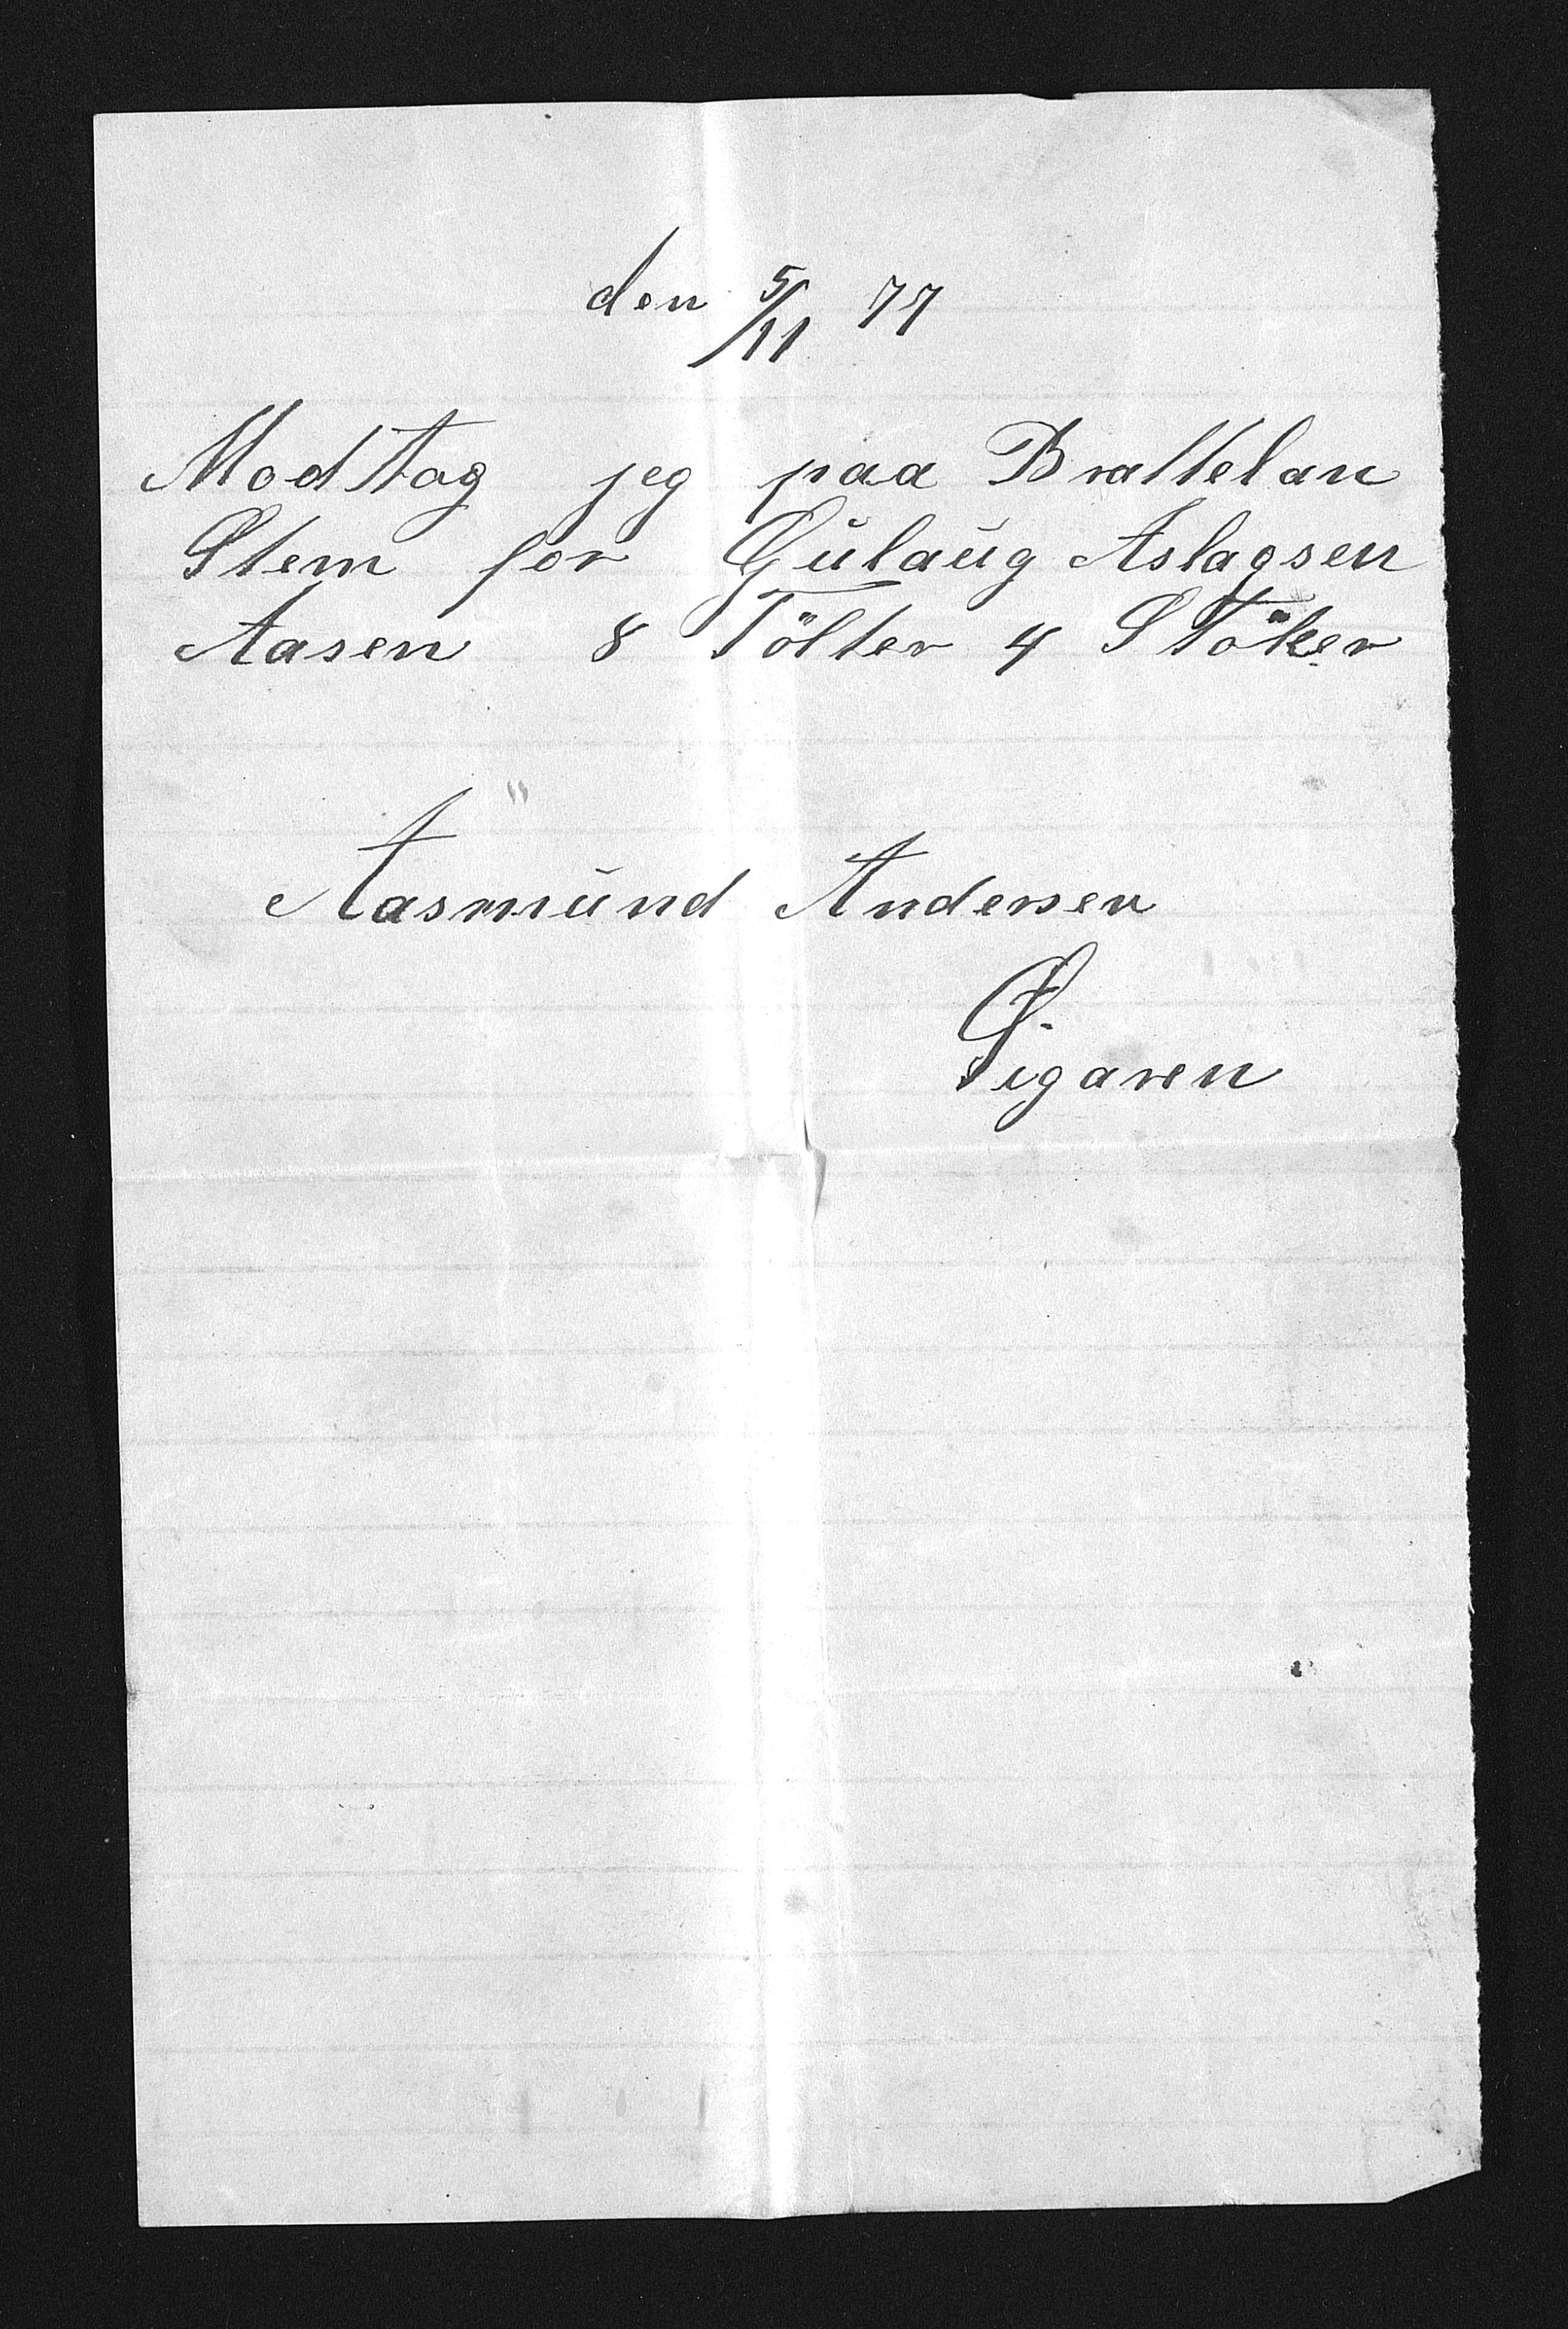 den 5/11 77
Modtog jeg paa Brattelan
Stem for Gulaug Aslagsen
Aasen 8 Tölter 4 Stöker
Aasmund Andersen
Øigaren